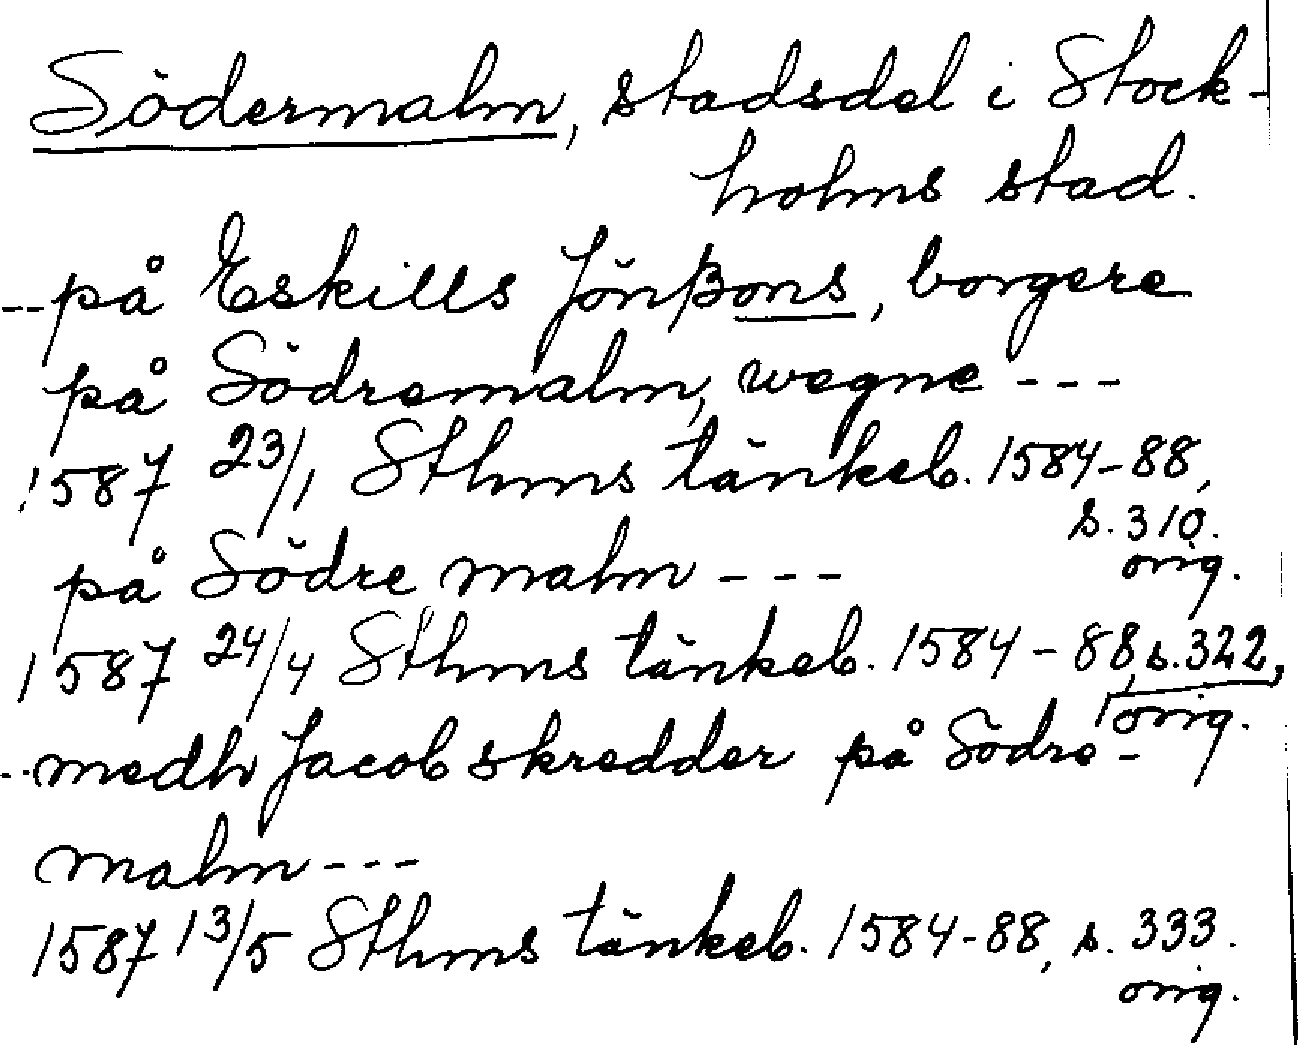 Södermalm, stadsdel i Stock-
holms stad.
--på Eskills Jönßons, borgere
på Södremalm, wegne ---
1587 23/1 Sthms tänkeb. 1584-88,
s. 310.
orig.
på Södre malm ---
1587 24/4 Sthms tänkeb. 1584-88, s. 322,
orig.
--medh Jacob skredder på Södre-
malm ---
1587 13/5 Sthms tänkeb. 1584-88, s. 333.
orig.